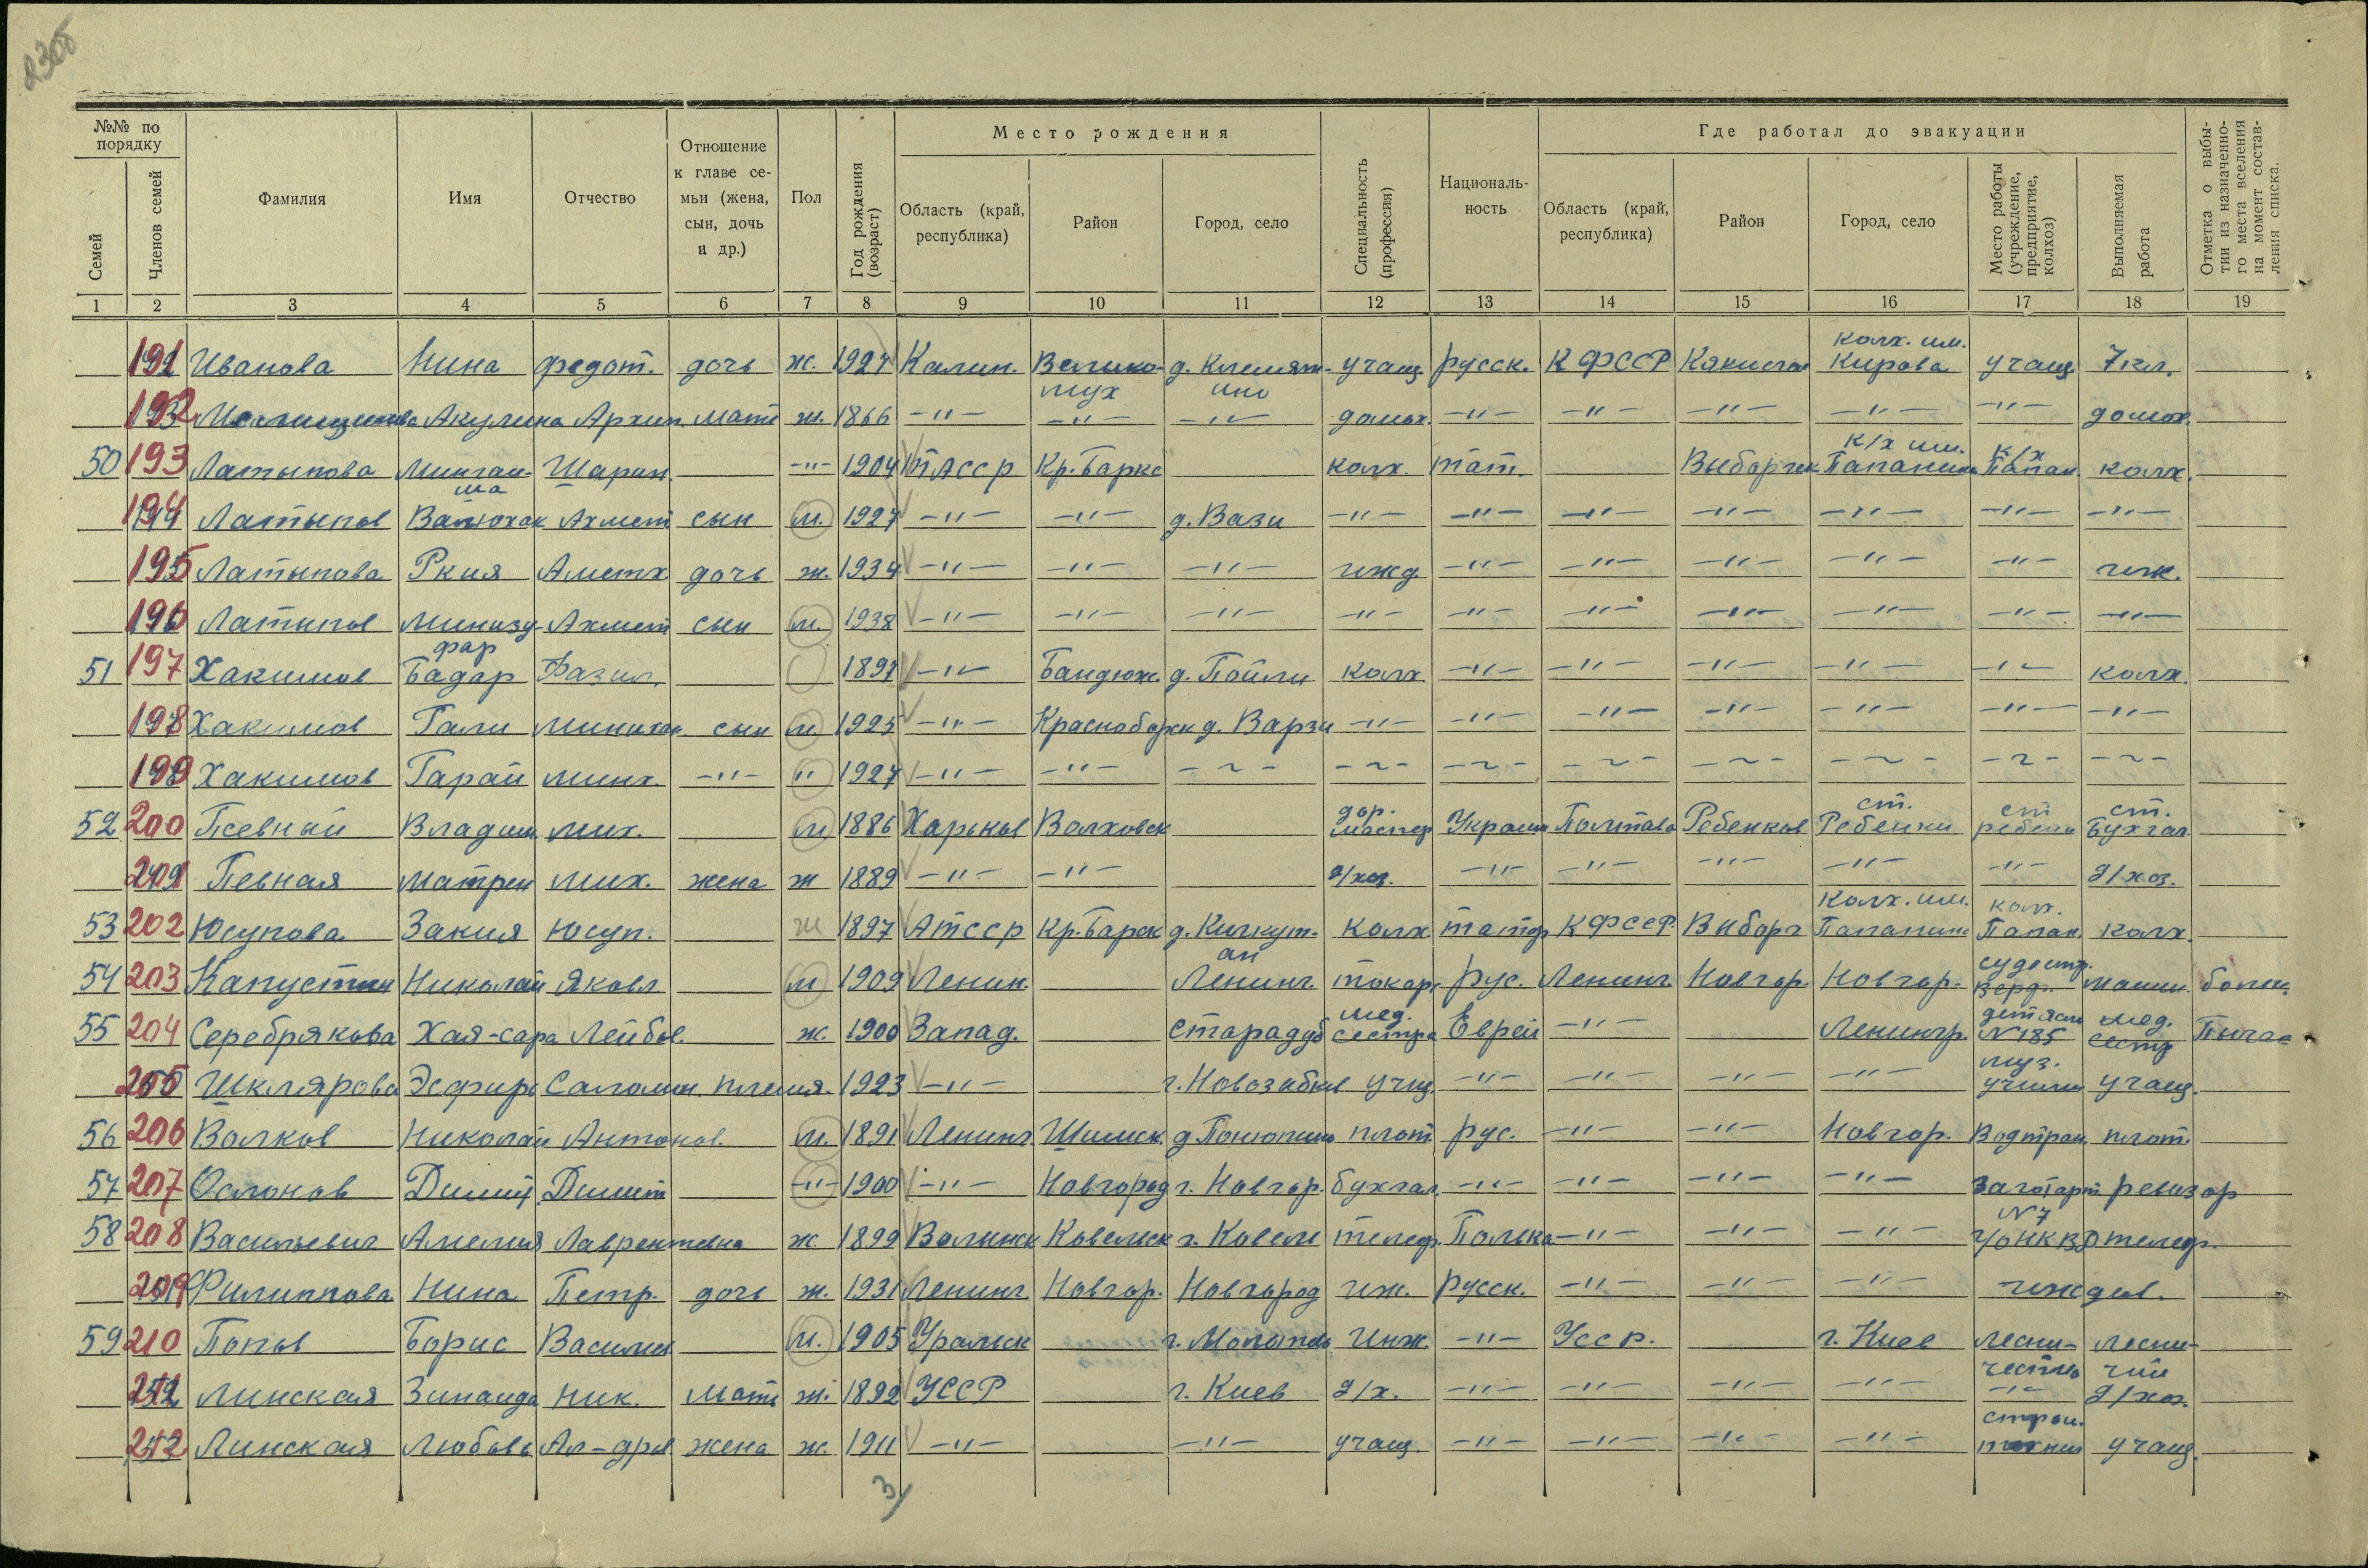 №№ по порядку | Фамилия | Имя | Отчество | Отношение к главе семьи (жена, сын, дочь и др.) | Пол | Год рождения (возраст) | Место рождения | Специальность (профессия) | Националь-ность | Где работал до эвакуации | Отметка о выбы-тии из назначенно-го места вселения на момент состав-ления списка.
Семей | Членов семей | Область (край, республика) | Район | Город, село | Область (край, республика) | Район | Город, село | Место работы (учреждение, предприятие, колхоз) | Выполняемая работа
1 2 3 4 5 6 7 8 9 10 11 12 13 14 15 16 17 18 19
191 Иванова Нина Федот. дочь ж. 1927 Калин. Велико-лух д. учащ. русск. КФССР колх. им. Кирова учащ. 7 кл.
192 Акулина Архип. мать ж. 1866 -"- -"- -"- домох. -"- -"- -"- -"- -"- домох.
50 193 Латыпова Шарип. -"- 1904 ТАССР Кр. Барс колх. тат. Выборгск к/х им. Папанина к/х Папан. колх.
194 Латыпов Ахмет сын м. 1927 -"- -"- д. Вази -"- -"- -"- -"- -"- -"- -"-
195 Латыпова Ркия Аметх. дочь ж. 1934 -"- -"- -"- ижд. -"- -"- -"- -"- -"- иж.
196 Латыпов Минизу-фар Ахмет сын м. 1938 -"- -"- -"- -"- -"- -"- -"- -"- -"- -"-
51 197 Хакимов Бадар Фазил. 1897 -"- Бандюж. д. Пойли колх -"- -"- -"- -"- -"- колх.
198 Хакимов Гали Минихан. сын м. 1925 -"- Красноборск д. Варзи -"- -"- -"- -"- -"- -"- -"-
199 Хакимов Гарай Минх. -"- " 1927 -"- -"- -"- -"- -"- -"- -"- -"- -"- -"-
52 200 Певный Владим. Мих. м 1886 Харьков Волховск дор. мастер Украин Полтава Ребенков ст. Ребенки ст ребенки ст. бухгал.
201 Певная Матрен Мих. жена ж 1889 -"- -"- д/хоз. -"- -"- -"- -"- -"- д/хоз.
53 202 Юсупова Закия Юсуп. ж 1897 АТССР Кр. Барск д. Кичкут-ан колх. татар КФССР. Выборг колх. им. Папанина колх. Папан. колх.
54 203 Капустин Николай Яковл м 1909 Ленин. Ленинг. токарь рус. Ленинг. Новгор. Новгор. судостр. верф. машин. больн.
55 204 Серебрякова Хая-сара Лейбов. ж. 1900 Запад. Старадуб мед. сестра Еврей -"- Ленингр. дет ясли №185 мед. сестр
205 Шклярова Эсфирь Саломон. племя. 1923 -"- г. Новозыбков учащ. -"- -"- -"- -"- муз. училищ учащ.
56 206 Волков Николай Антонов. м. 1891 Ленинг Шимск. плот рус. -"- -"- Новгор. Водтран. плот.
57 207 Ослонов Димит. Димит -"- 1900 -"- Новгород г. Новгор. бухгал. -"- -"- -"- -"- Заготзерн ревизор
58 208 Васильевич Амелия Лаврентевна ж. 1899 Волынск Ковельск г. Ковель телеф. Полька -"- -"- -"- №7 УОНКВД телеф.
209 Филиппова Нина Петр. дочь ж. 1931 Ленинг. Новгор. Новгород иж. русск. -"- -"- -"- иждев.
59 210 Попов Борис Василев м. 1905 Уральск г. Молотовь Инж. -"- УССР. г. Киев лесни-чество лесни-чий
211 Линская Зинаида Ник. мать ж. 1892 УССР г. Киев д/х. -"- -"- -"- -"- -"- д/хоз.
212 Линская Любовь Ал-дров жена ж. 1911 -"- -"- учащ. -"- -"- -"- -"- строи. техник учащ.
3